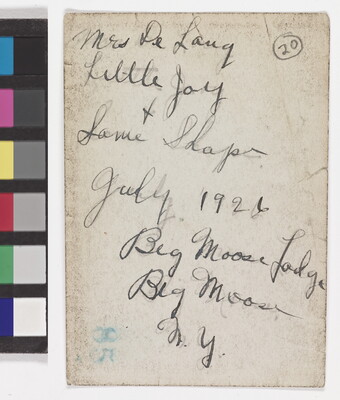 Mrs De Lang
20
Little Joy
+
Same Shape
July 1926
Big Moose Lodge
Big Moose
N.Y.
85